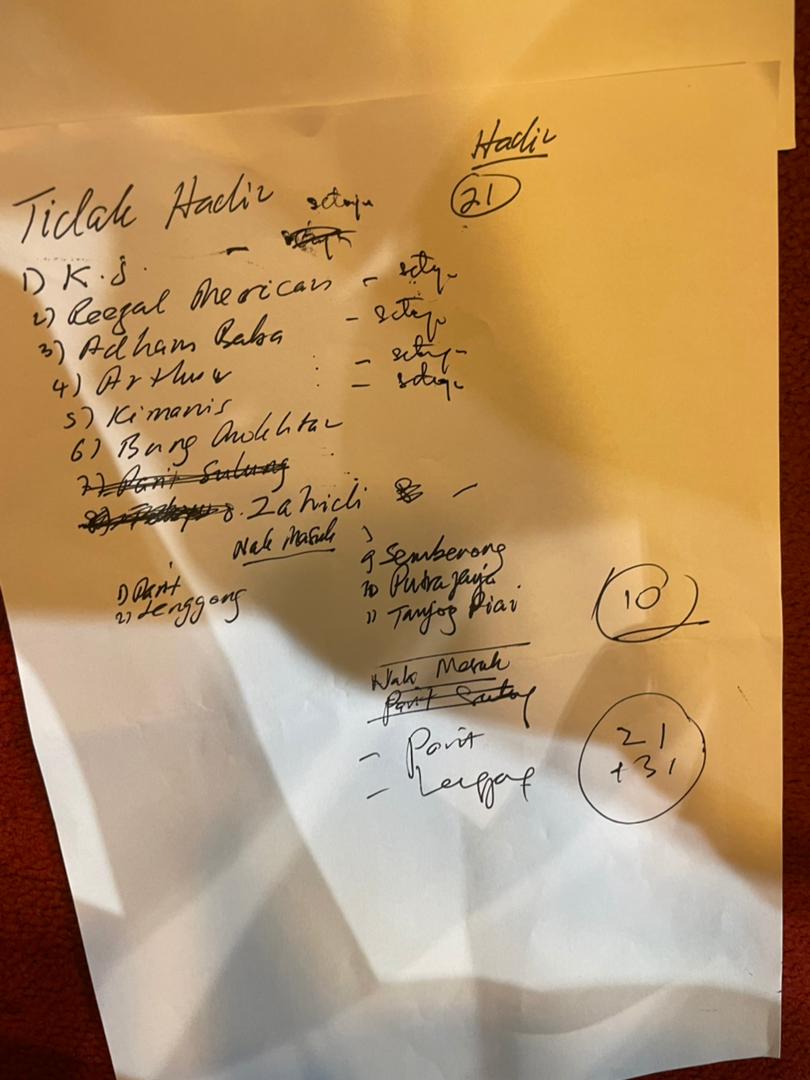 Hadir
21
Tidak Hadir setuju
1) K.J. -
2) Reezal Merican - setuju
3) Adham Baba - setuju
4) Arthur - setuju
5) Kimanis - setuju
6) Bung Mokhtar
7) Parit Sulong
8. Zahidi -
Nak Masuk
9 Semberong
1) Parit
10 Putrajaya
2) Lenggong
11 Tanjog Piai
10
Nak Masuk
Parit Sulong
- Parit
- Lenggong
21
+31